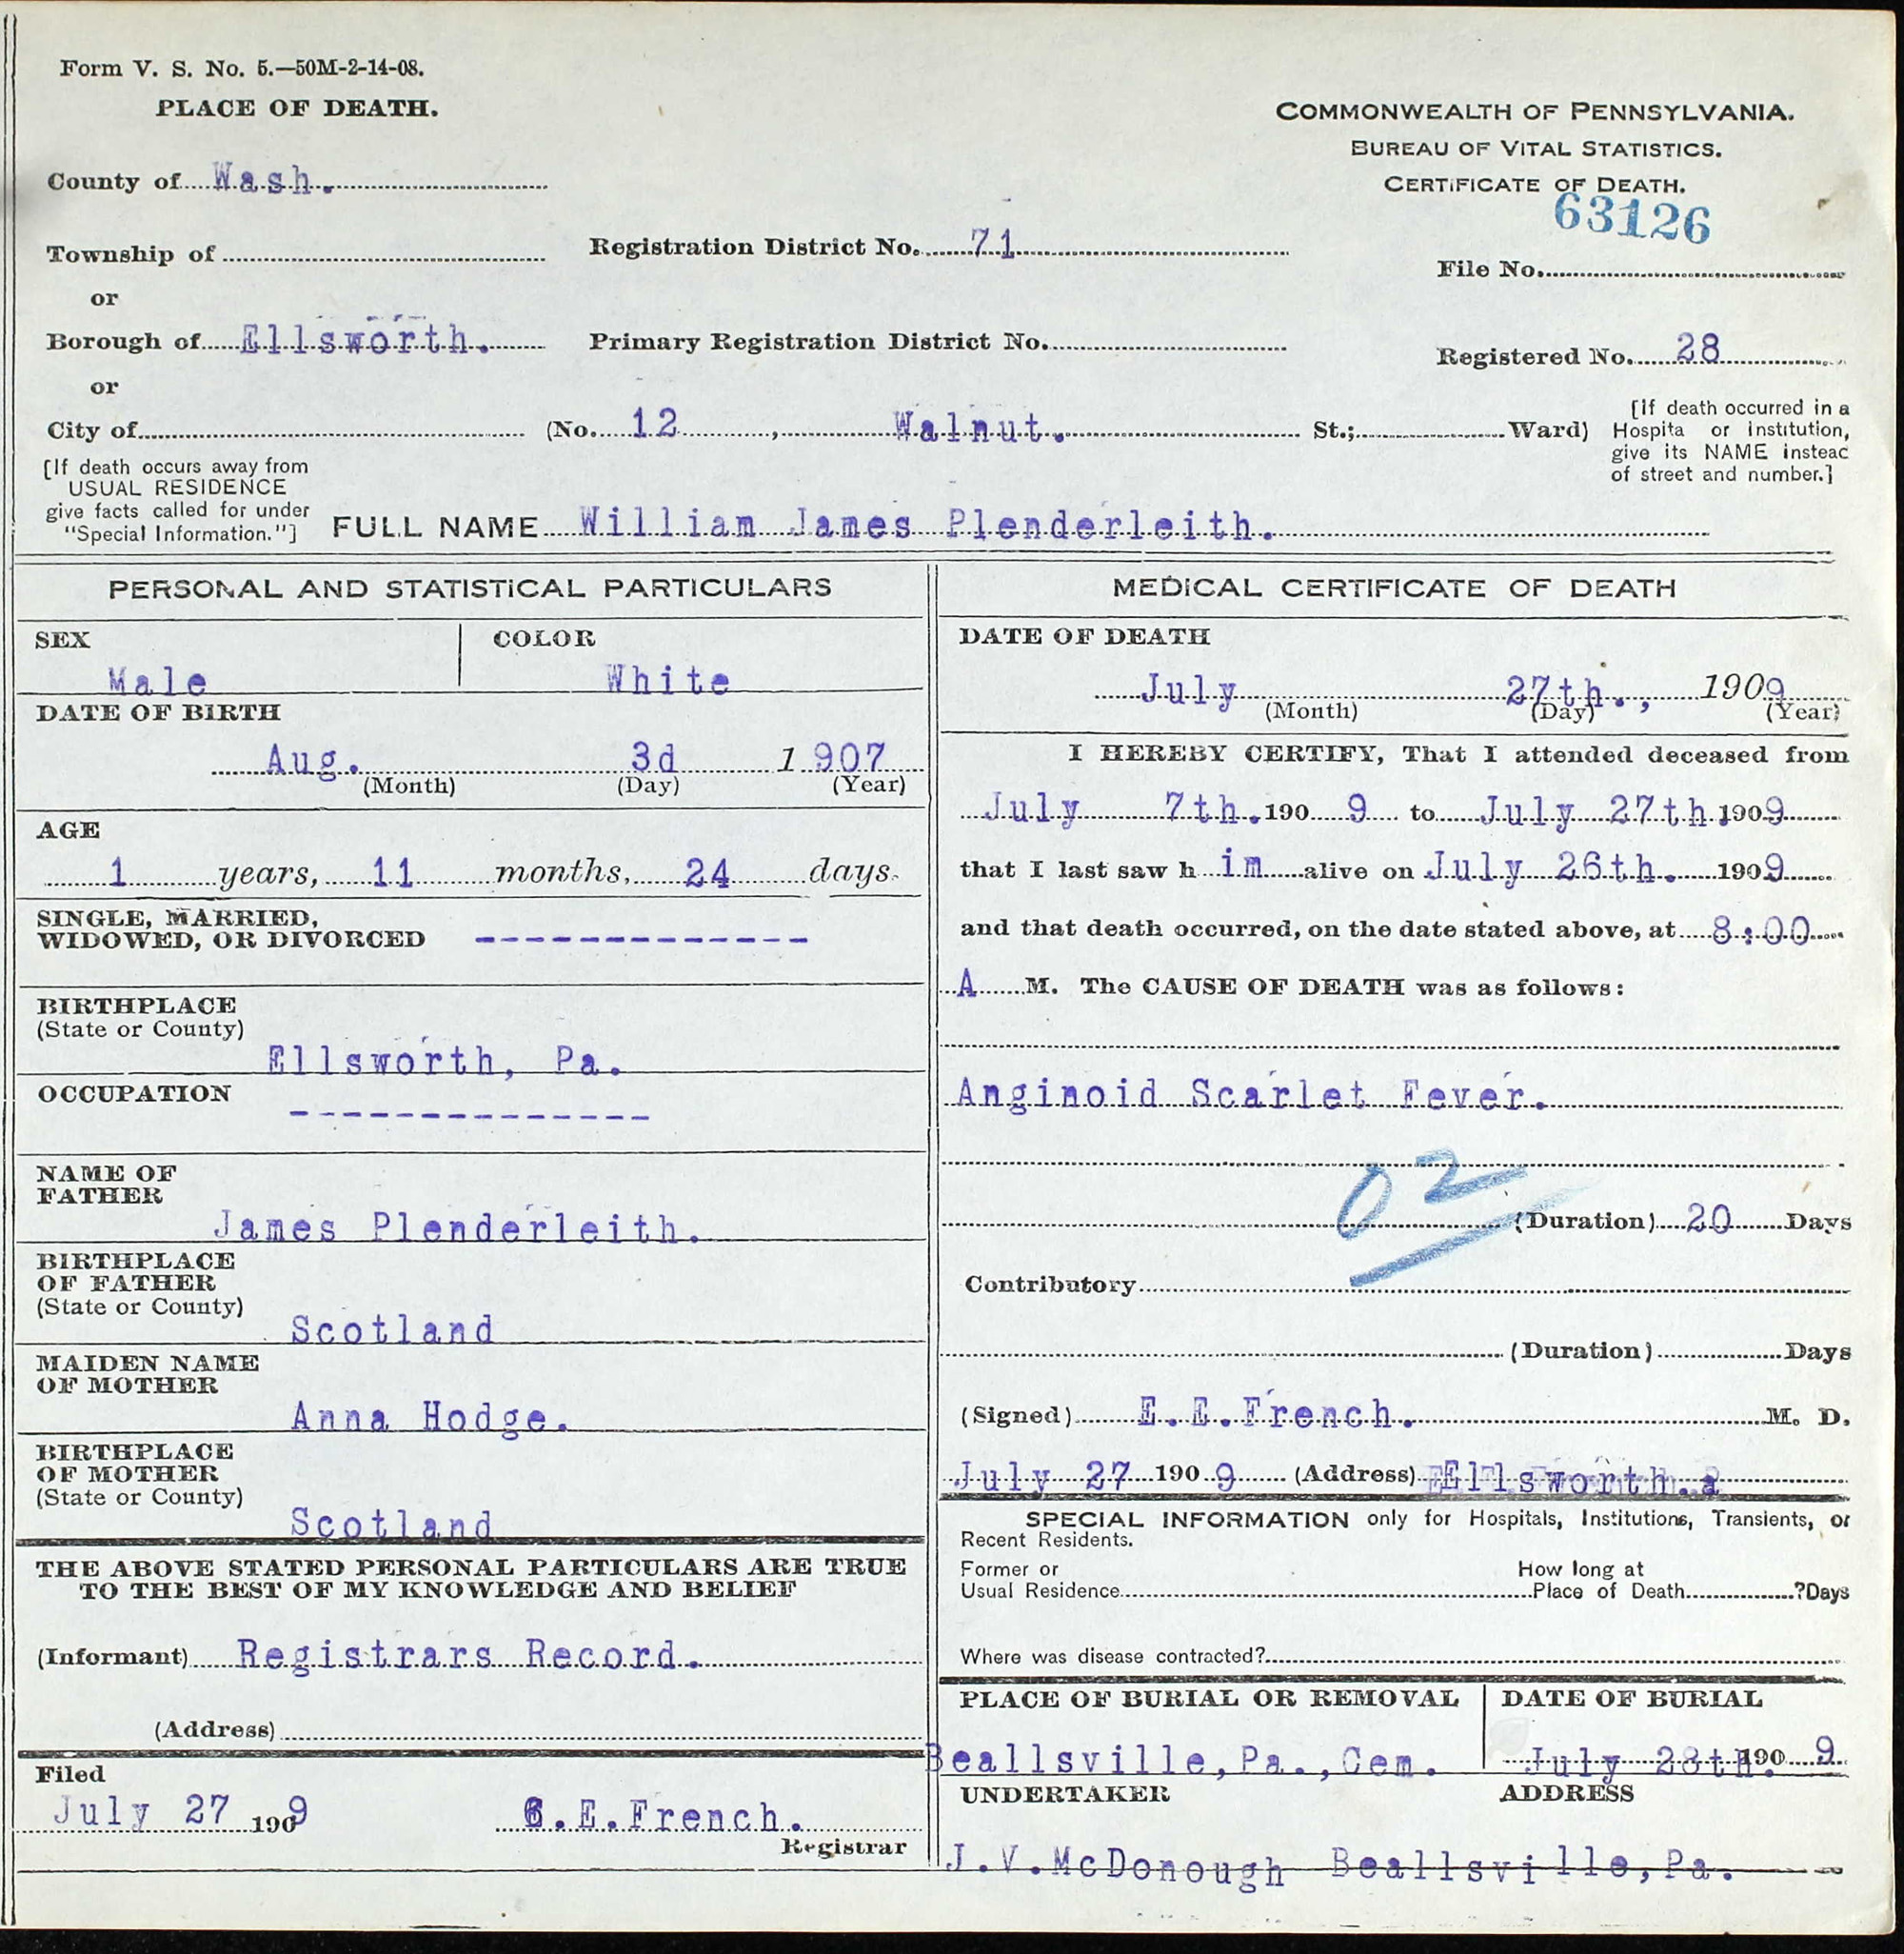 Form V. S. No. 5.—50M-2-14-08.
PLACE OF DEATH.
COMMONWEALTH OF PENNSYLVANIA.
BUREAU OF VITAL STATISTICS.
CERTIFICATE OF DEATH.
63126
County of Wash.
Township of
Registration District No. 71
File No.
or
Borough of Ellsworth.
Primary Registration District No.
Registered No. 28
or
City of (No. 12, Walnut. St.; Ward)
[If death occurred in a
Hospita or institution,
give its NAME insteac
of street and number.]
[If death occurs away from
USUAL RESIDENCE
give facts called for under
"Special Information."]
FULL NAME William James Plenderleith.
PERSONAL AND STATISTICAL PARTICULARS
SEX
Male
COLOR
White
DATE OF BIRTH
Aug. 3d 1907
(Month) (Day) (Year)
AGE
1 years, 11 months, 24 days.
SINGLE, MARRIED,
WIDOWED, OR DIVORCED -------------
BIRTHPLACE
(State or County)
Ellsworth, Pa.
OCCUPATION
--------------
NAME OF
FATHER
James Plenderleith.
BIRTHPLACE
OF FATHER
(State or County)
Scotland
MAIDEN NAME
OF MOTHER
Anna Hodge.
BIRTHPLACE
OF MOTHER
(State or County)
Scotland
THE ABOVE STATED PERSONAL PARTICULARS ARE TRUE
TO THE BEST OF MY KNOWLEDGE AND BELIEF
(Informant) Registrars Record.
(Address)
Filed
July 27 1909 E.French.
Registrar
MEDICAL CERTIFICATE OF DEATH
DATE OF DEATH
July 27th., 1909
(Month) (Day) (Year)
I HEREBY CERTIFY, That I attended deceased from
July 7th. 1909 to July 27th. 1909
that I last saw him alive on July 26th. 1909
and that death occurred, on the date stated above, at 8:00
A M. The CAUSE OF DEATH was as follows:
Anginoid Scarlet Fever.
02
(Duration) 20 Days
Contributory
(Duration) Days
(Signed) E.E.French. M. D.
July 27 1909 (Address) Ellsworth.
SPECIAL INFORMATION only for Hospitals, Institutions, Transients, or
Recent Residents.
Former or
Usual Residence
How long at
Place of Death ?Days
Where was disease contracted?
PLACE OF BURIAL OR REMOVAL
Beallsville,Pa.,Cem.
DATE OF BURIAL
July 28th. 1909
UNDERTAKER
J.V.McDonough
ADDRESS
Beallsville,Pa.